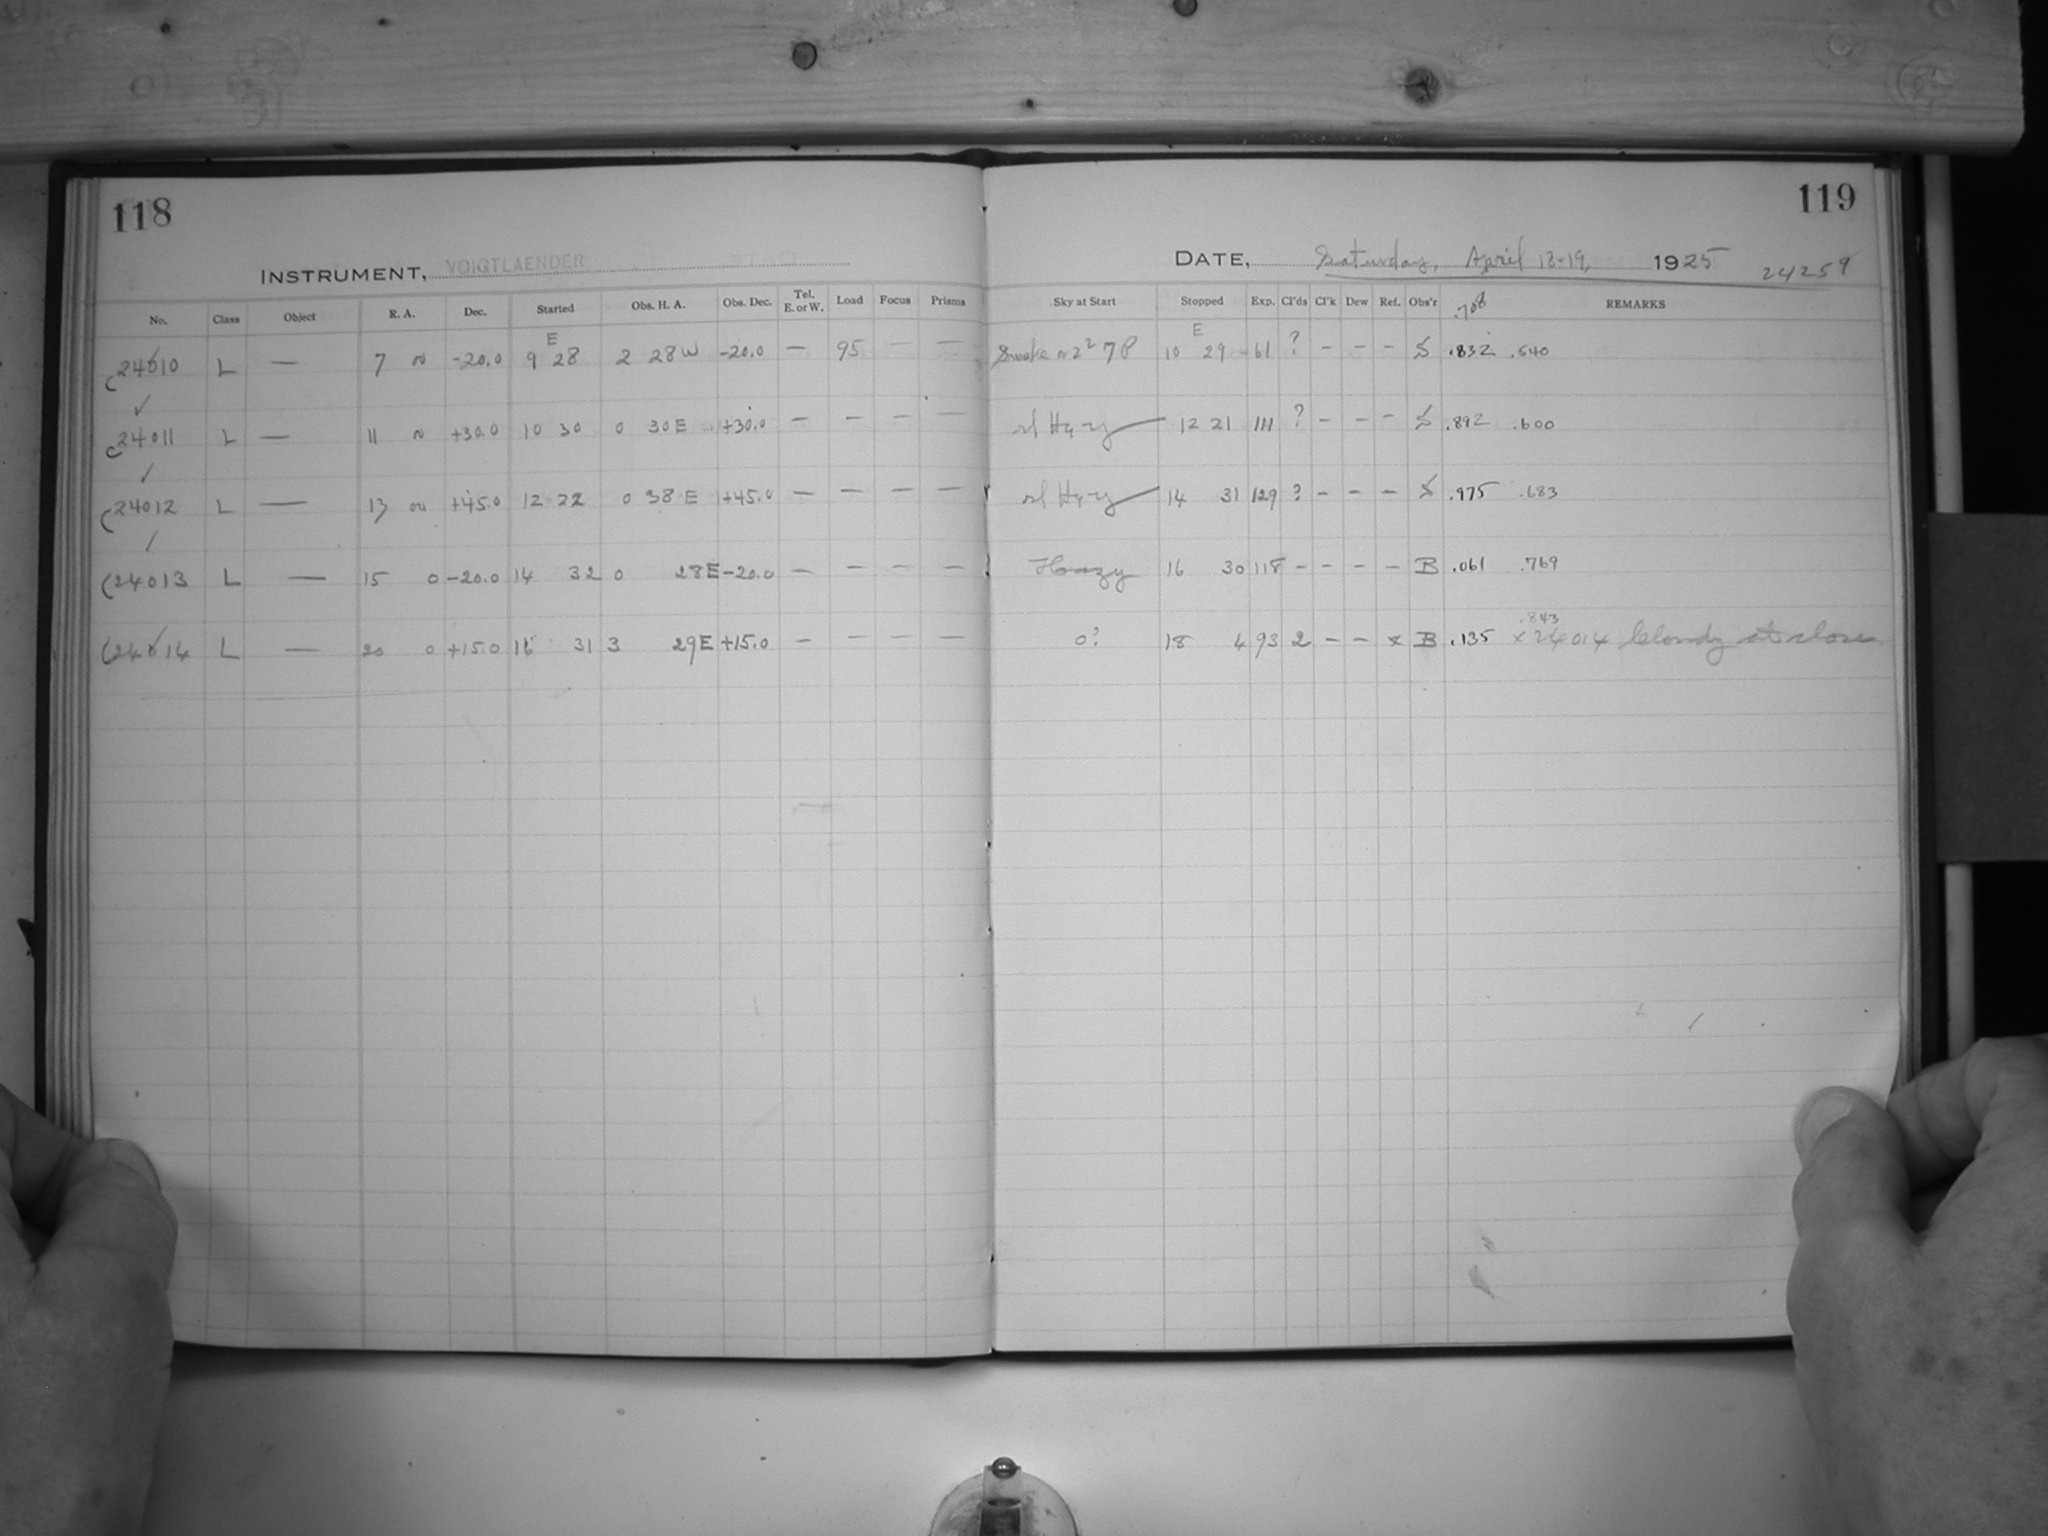 118
INSTRUMENT, VOIGTLAENDER
No. Class Object R. A. Dec. Started Obs. H. A. Obs. Dec. Tel. E. or W. Load Focus Prisms
E
C24010 L — 7 -20.0 9 28 2 28 W -20.0 — 95 — —
C24011 L — 11 +30.0 10 30 0 30 E +30.0 — — — —
C24012 L — 13 +45.0 12 22 0 38 E +45.0 — — — —
C24013 L — 15 0 -20.0 14 32 0 28 E -20.0 — — — —
C24014 L — 20 0 +15.0 16 31 3 29 E +15.0 — — — —
119
DATE, Saturday, April 18-19, 1925
24259
Sky at Start Stopped Exp. Cl'ds Cl'k Dew Ref. Obs'r .708 REMARKS
E
Smoke 10 29 61 ? - - - S .832 .540
12 21 111 ? - - - S .892 .600
14 31 129 ? - - - S .975 .683
Hazy 16 30 118 - - - - B .061 .769
.843
0? 18 4 93 2 - - x B .135 x 24014 Cloudy at close